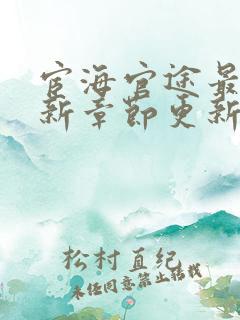 宦海官途最
新章节更新
松村直纪
未经同意禁止转载